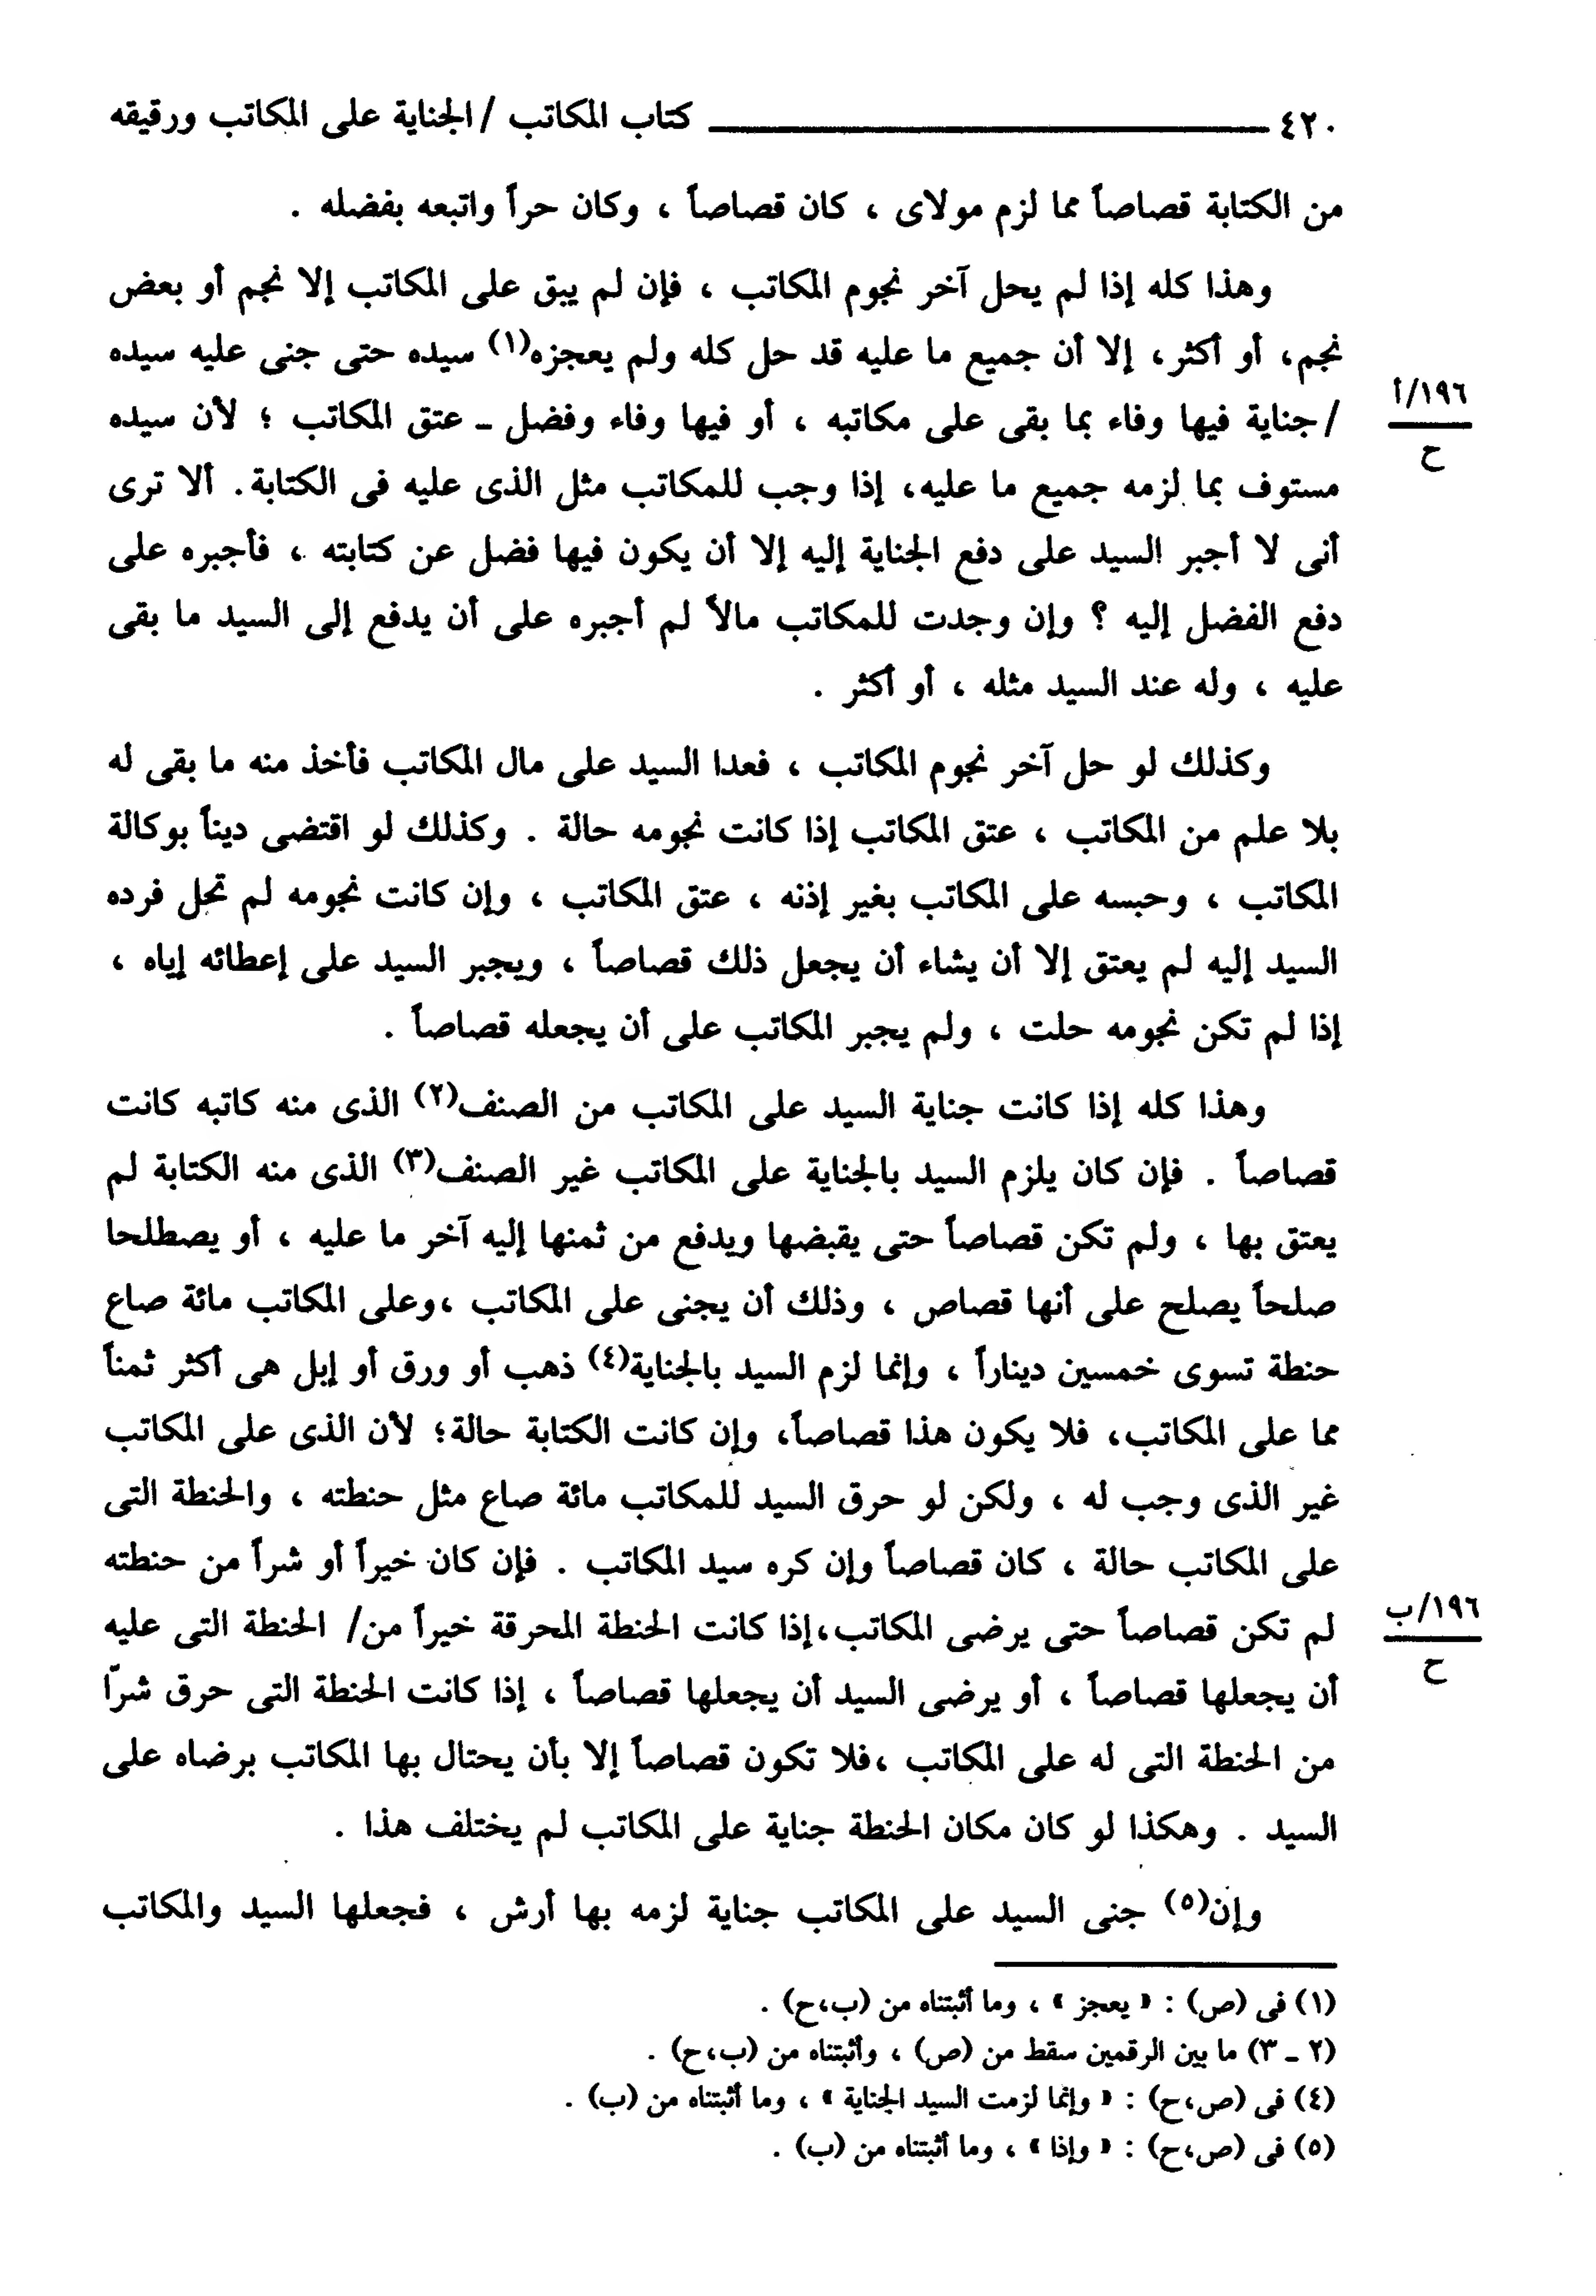 ٤٢٠ ــــــ كتاب المكاتب / الجناية على المكاتب ورقيقه
من الكتابة قصاصاً مما لزم مولاى ، كان قصاصاً ، وكان حراً واتبعه بفضله .
وهذا كله إذا لم يحل آخر نجوم المكاتب ، فإن لم يبق على المكاتب إلا نجم أو بعض
نجم، أو أكثر، إلا أن جميع ما عليه قد حل كله ولم يعجزه(١) سيده حتى جنى عليه سيده
١٩٦/أ
ح
/ جناية فيها وفاء بما بقى على مكاتبه ، أو فيها وفاء وفضل ـ عتق المكاتب ؛ لأن سيده
مستوف بما لزمه جميع ما عليه، إذا وجب للمكاتب مثل الذى عليه فى الكتابة. ألا ترى
أنى لا أجبر السيد على دفع الجناية إليه إلا أن يكون فيها فضل عن كتابته ، فأجبره على
دفع الفضل إليه ؟ وإن وجدت للمكاتب مالاً لم أجبره على أن يدفع إلى السيد ما بقى
عليه ، وله عند السيد مثله ، أو أكثر .
وكذلك لو حل آخر نجوم المكاتب ، فعدا السيد على مال المكاتب فأخذ منه ما بقى له
بلا علم من المكاتب ، عتق المكاتب إذا كانت نجومه حالة . وكذلك لو اقتضى ديناً بوكالة
المكاتب ، وحبسه على المكاتب بغير إذنه ، عتق المكاتب ، وإن كانت نجومه لم تحل فرده
السيد إليه لم يعتق إلا أن يشاء أن يجعل ذلك قصاصاً ، ويجبر السيد على إعطائه إياه ،
إذا لم تكن نجومه حلت ، ولم يجبر المكاتب على أن يجعله قصاصاً .
وهذا كله إذا كانت جناية السيد على المكاتب من الصنف(٢) الذى منه كاتبه كانت
قصاصاً . فإن كان يلزم السيد بالجناية على المكاتب غير الصنف(٣) الذى منه الكتابة لم
يعتق بها ، ولم تكن قصاصاً حتى يقبضها ويدفع من ثمنها إليه آخر ما عليه ، أو يصطلحا
صلحاً يصلح على أنها قصاص ، وذلك أن يجنى على المكاتب ،وعلى المكاتب مائة صاع
حنطة تسوى خمسين ديناراً ، وإنما لزم السيد بالجناية(٤) ذهب أو ورق أو إبل هى أكثر ثمناً
مما على المكاتب، فلا يكون هذا قصاصاً، وإن كانت الكتابة حالة؛ لأن الذى على المكاتب
غير الذى وجب له ، ولكن لو حرق السيد للمكاتب مائة صاع مثل حنطته ، والحنطة التى
على المكاتب حالة ، كان قصاصاً وإن كره سيد المكاتب . فإن كان خيراً أو شراً من حنطته
١٩٦/ب
ح
لم تكن قصاصاً حتى يرضى المكاتب،إذا كانت الحنطة المحرقة خيراً من/ الحنطة التى عليه
أن يجعلها قصاصاً ، أو يرضى السيد أن يجعلها قصاصاً ، إذا كانت الحنطة التى حرق شرّا
من الحنطة التى له على المكاتب ،فلا تكون قصاصاً إلا بأن يحتال بها المكاتب برضاه على
السيد . وهكذا لو كان مكان الحنطة جناية على المكاتب لم يختلف هذا .
وإن(٥) جنى السيد على المكاتب جناية لزمه بها أرش ، فجعلها السيد والمكاتب
(١) فى (ص) : « يعجز » ، وما أثبتناه من (ب،ح) .
(٢ ـ ٣) ما بين الرقمين سقط من (ص) ، وأثبتناه من (ب،ح) .
(٤) فى (ص،ح) : « وإنما لزمت السيد الجناية » ، وما أثبتناه من (ب) .
(٥) فى (ص،ح) : « وإذا » ، وما أثبتناه من (ب) .